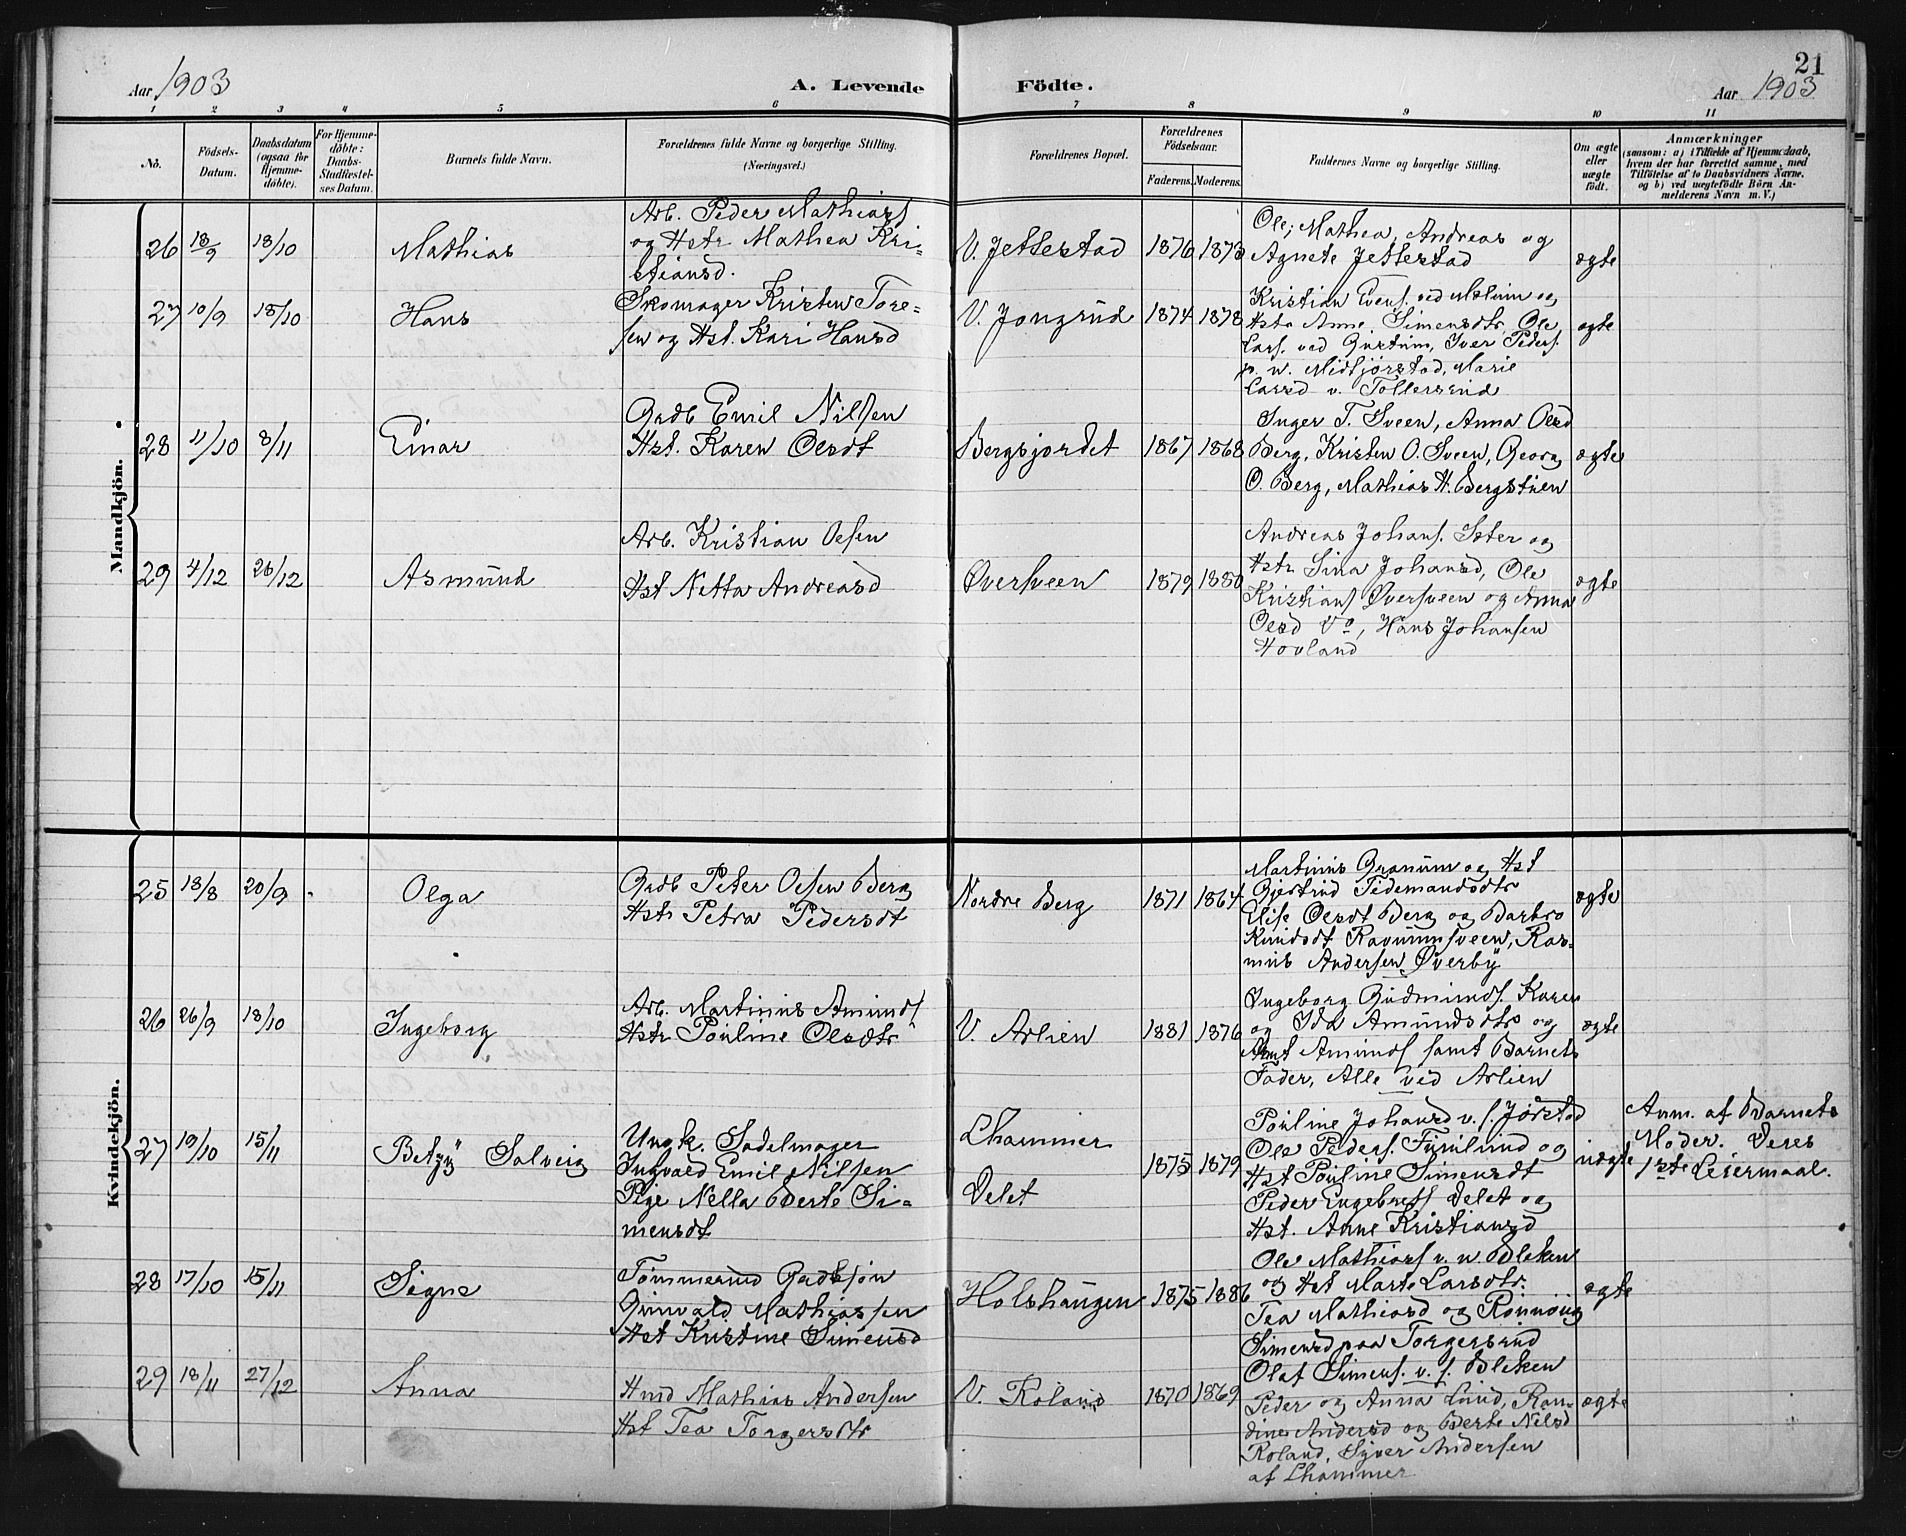 21
Aar 1903
A. Levende
Födte.
Aar 1903
1 2 3 4 5 6 7 8 9 10 11
No.
Födsels-
Datum.
Daabsdatum
(ogsaa for
Hjemme-
döbte).
For Hjemme-
döbte:
Daabs-
Stadfæstel-
ses Datum.
Barnets fulde Navn.
Forældrenes fulde Navne og borgerlige Stilling.
(Næringsvei.)
Forældrenes Bopæl.
Forældrenes
Födselsaar.
Faderens. Moderens.
Faddernes Navne og borgerlige Stilling.
Om ægte
eller
uægte
födt.
Anmærkninger
(saasom: a) i Tilfælde af Hjemmedaab,
hvem der har forrettet samme, med
Tilföielse af to Daabsvidners Navne,
og b) ved uægtefödte Börn An-
melderens Navn m. V.)
Mandkjön.
26 18/9 18/10 Mathias
Arb. Peder Mathiass
og Hstr Mathea Kri-
stiansd.
V. Jettestad 1876 1873
Ole, Mathea, Andreas og
Agnete Jettestad
ægte
27 10/9 18/10 Hans
Skomager Kristen Tore-
sen og Hst. Kari Hansd
V. Jongrud 1874 1878
Kristian Evens. ved Mælum og
Hstr Anne Simensdtr, Ole
Lars. ved Gustum, Iver Peders.
p. n. Midtjørstad, Marie
Larsd v. Tollersrud
ægte
28 11/10 8/11 Einar
Grdb Emil Nilsen
Hst. Karen Olsdt
Bergsjordet 1867 1868
Inger T. Sveen, Anna Olsd
Berg, Kristen O. Sveen, Georg
O. Berg, Mathias H. Bergstuen
ægte
29 4/12 26/12 Asmund
Arb. Kristian Olsen
Hst Netta Andreasd
Øversveen 1879 1880
Andreas Johans. Sæter og
Hstr Sina Johansd, Ole
Kristians Øversveen og Anna
Olsd Vo, Hans Johansen
Hovland
ægte
Kvindekjön.
25 18/8 20/9 Olga
Grdb Peter Olsen Berg
Hstr Petra Pedersdt
Nordre Berg 1871 1864
Martinus Granum og Hst
Gjertrud Tidemandsdtr
Elise Olsdt Berg og Barbro
Knudsdt Ravnumsveen, Ras-
mus Andersen Øverby
ægte
26 26/9 18/10 Ingeborg
Arb. Martinus Amunds
Hstr Pouline Olsdtr
V. Arlien 1881 1876
Ingeborg Gudmunds. Karen
og Ida Amundsdtr og
Amt Amunds samt Barnets
Fader, Alle ved Arlien
ægte
27 19/10 15/11 Betzy Solveig
Ungk. Sadelmager
Ingvald Emil Nilsen
Pige Nella Berte Si-
mensdt
Lhammer
Delet
1875 1879
Pouline Johansd v. s. Jørstad
Ole Peders. Furulund og
Hst Pouline Simensdt
Peder Engebrets Delet og
Hst. Anne Kristiansd
uægte
Anm. af Barnets
Moder. Deres
1ste Leiermaal.
28 17/10 15/11 Signe
Tømmermd Grdbsøn
Gunvald Mathiassen
Hst Kristine Simensd
Holshaugen 1875 1886
Ole Mathiass v. n. Bleken
og Hst Marte Larsdtr.
Tea Mathiasd og Rønnoug
Simensd paa Torgersrud
Olaf Simens. v. s. Bleken
ægte
29 18/11 27/12 Anna
Hmd Mathias Andersen
Hst Tea Torgersdtr
V. Roland 1870 1869
Peder og Anna Lund, Ran-
dine Andersd og Berte Nilsd
Roland, Syver Andersen
af Lhammer
ægte